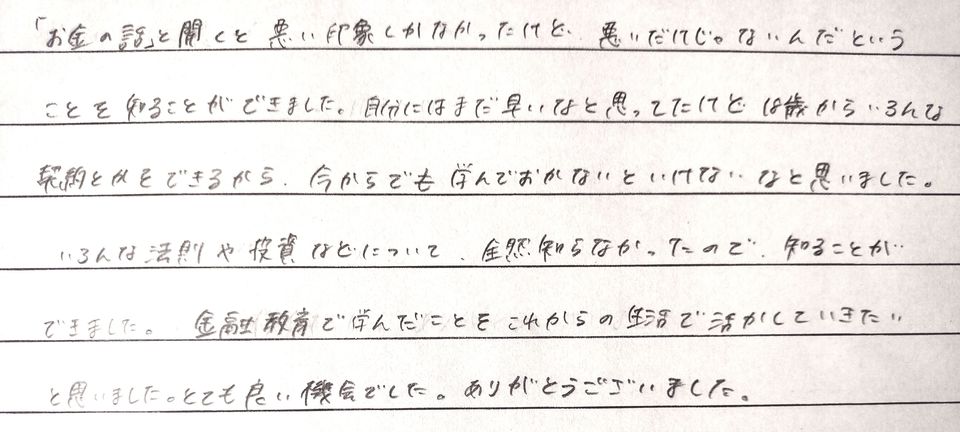 「お金の話」と聞くと悪い印象しかなかったけど、悪いだけじゃないんだという
ことを知ることができました。自分にはまだ早いなと思ってたけど18歳からいろんな
契約とかをできるから、今からでも学んでおかないといけないなと思いました。
いろんな法則や投資などについて、全然知らなかったので、知ることが
できました。金融教育で学んだことをこれからの生活で活かしていきたい
と思いました。とても良い機会でした。ありがとうございました。